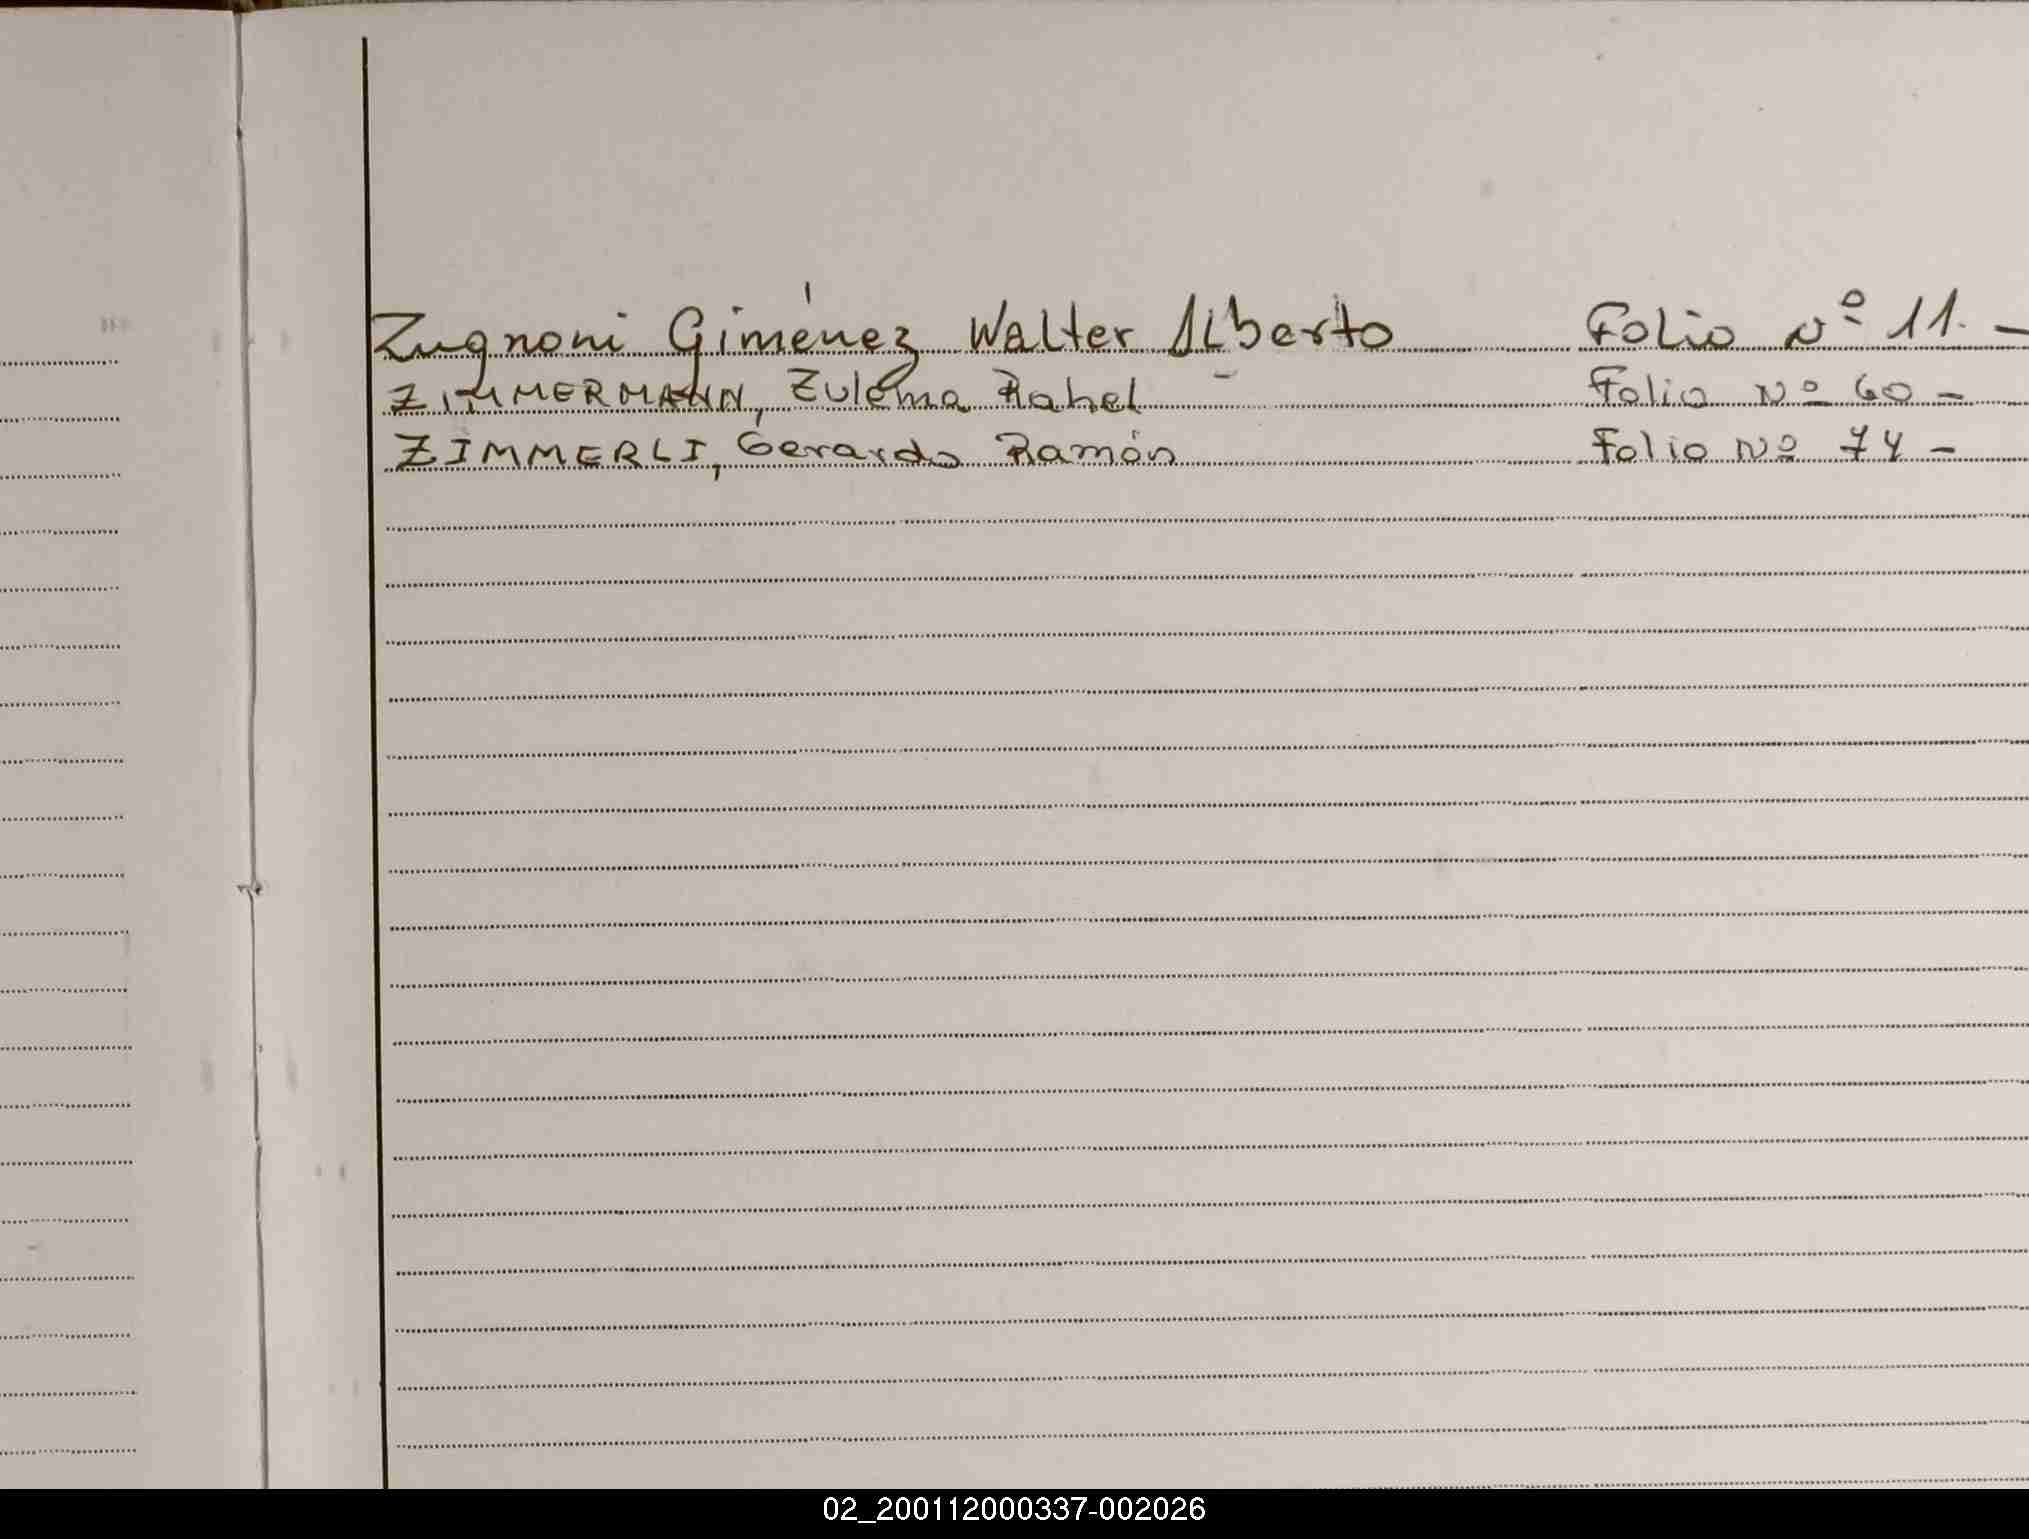 Zugnoni Giménez Walter Alberto Folio Nº 11. -
ZIMMERMANN, Zulema Rahel - Folio Nº 60 -
ZIMMERLI, Gerardo Ramón Folio Nº 74 -
02_200112000337-002026